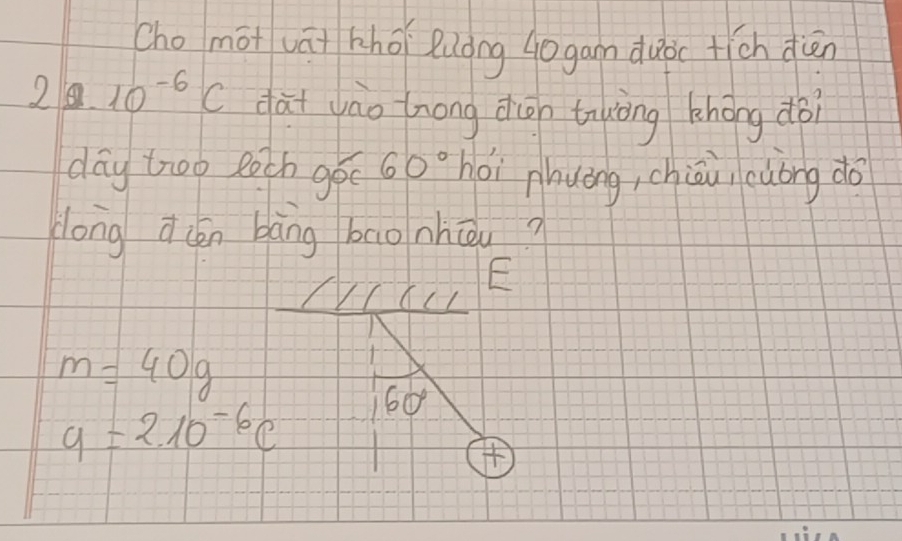 Cho một vật khối lượng 40gam được tích điện
2.10⁻⁶ C đặt vào trong điện trường không đổi
dây treo lệch góc 60° hỏi phương, chiều, cường độ
dòng điện bằng bao nhiêu ?
E
m = 40g
60°
q = 2.10⁻⁶C
+